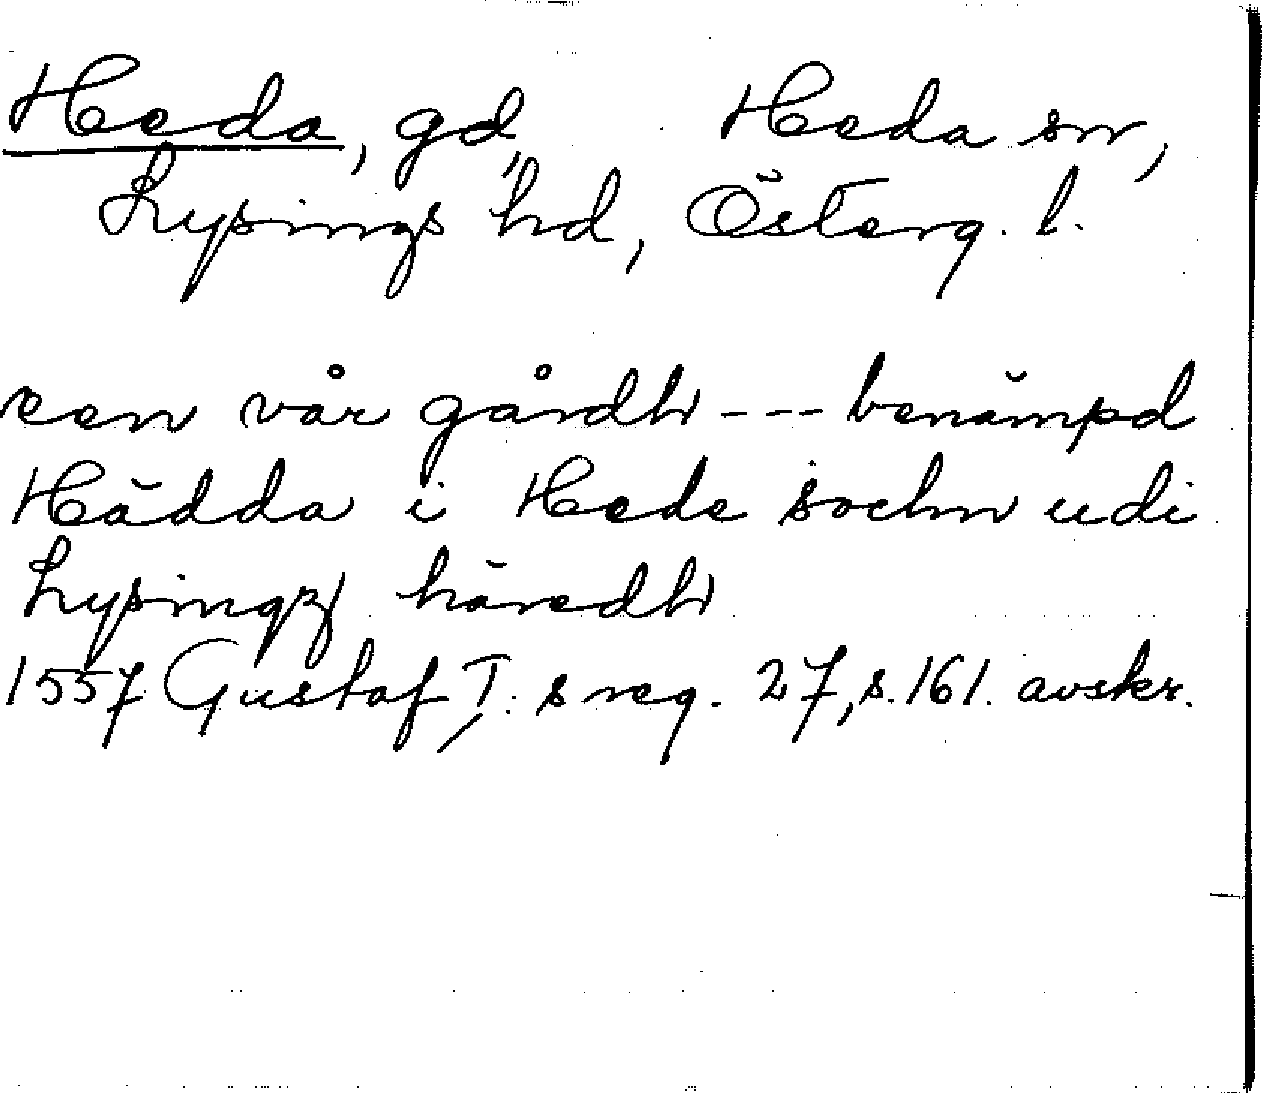 Heda, gd, Heda sn,
Lysings hd, Österg. l.
een vår gårdh --- benämpd
Hädda i Hede sochn udi
Lysingz häredh
1557 Gustaf I:s reg. 27, s. 161. avskr.